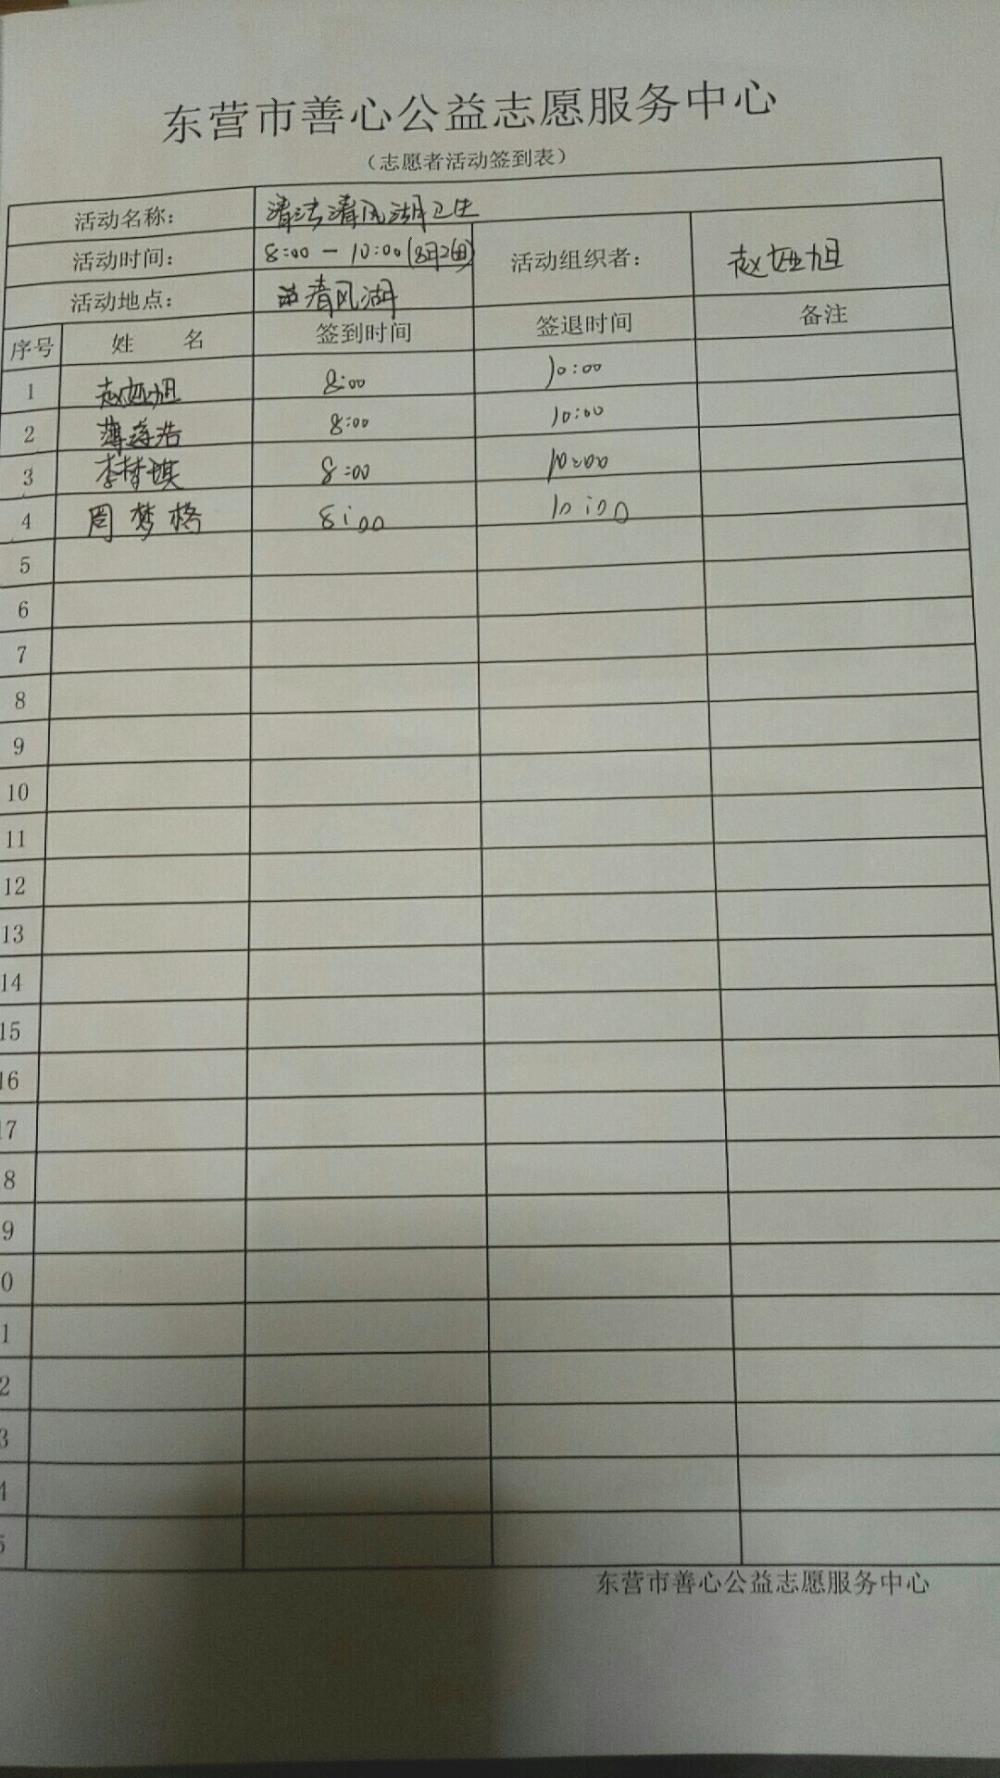 东营市善心公益志愿服务中心
（志愿者活动签到表）
活动名称： 清洁清风湖卫生
活动时间： 8:00 — 10:00 (8月2日) 活动组织者： 赵娅旭
活动地点： 清风湖
序号 姓 名 签到时间 签退时间 备注
1 赵娅旭 8:00 10:00
2 薄海浩 8:00 10:00
3 李梦琪 8:00 10:00
4 周梦格 8:00 10:00
5
6
7
8
9
10
11
12
13
14
15
16
17
8
9
0
1
2
3
4
5
东营市善心公益志愿服务中心